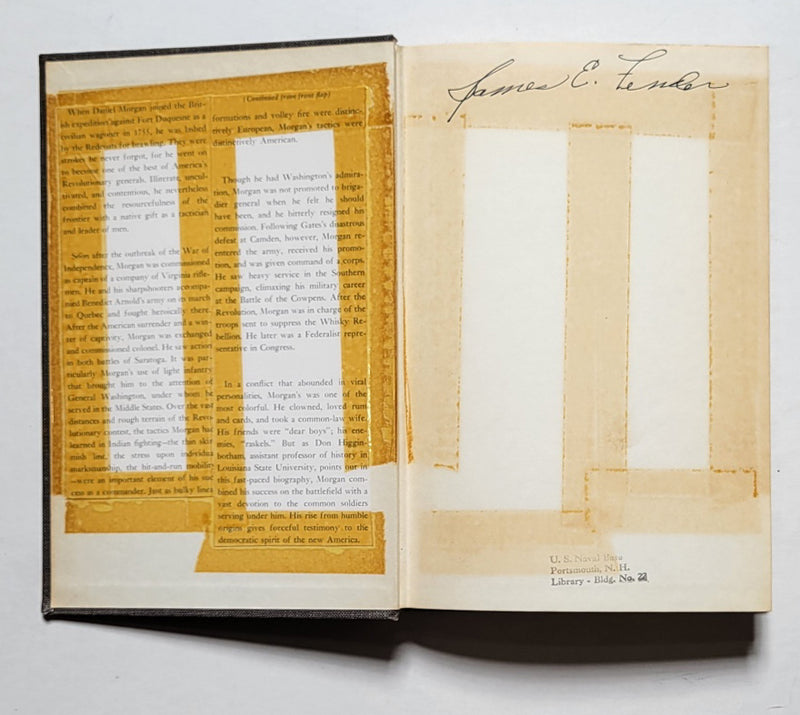 When Daniel Morgan joined the Brit-
ish expedition against Fort Duquesne as a
civilian wagoner in 1755, he was lashed
by the Redcoats for brawling. They were
strokes he never forgot, for he went on
to become one of the best of America's
Revolutionary generals. Illiterate, uncul-
tivated, and contentious, he nevertheless
combined the resourcefulness of the
frontier with a native gift as a tactician
and leader of men.
Soon after the outbreak of the War of
Independence, Morgan was commissioned
as captain of a company of Virginia rifle-
men. He and his sharpshooters accompa-
nied Benedict Arnold's army on its march
to Quebec and fought heroically there.
After the American surrender and a win-
ter of captivity, Morgan was exchanged
and commissioned colonel. He saw action
in both battles of Saratoga. It was par-
ticularly Morgan's use of light infantry
that brought him to the attention of
General Washington, under whom he
served in the Middle States. Over the vast
distances and rough terrain of the Revo-
lutionary contest, the tactics Morgan had
learned in Indian fighting—the thin skir-
mish line, the stress upon individual
marksmanship, the hit-and-run mobility
—were an important element of his suc-
cess as a commander. Just as bulky lines
(Continued from front flap)
formations and volley fire were distinc-
tively European, Morgan's tactics were
distinctively American.
Though he had Washington's admira-
tion, Morgan was not promoted to briga-
dier general when he felt he should
have been, and he bitterly resigned his
commission. Following Gates's disastrous
defeat at Camden, however, Morgan re-
entered the army, received his promo-
tion, and was given command of a corps.
He saw heavy service in the Southern
campaign, climaxing his military career
at the Battle of the Cowpens. After the
Revolution, Morgan was in charge of the
troops sent to suppress the Whisky Re-
bellion. He later was a Federalist repre-
sentative in Congress.
In a conflict that abounded in vital
personalities, Morgan's was one of the
most colorful. He clowned, loved rum
and cards, and took a common-law wife.
His friends were "dear boys"; his ene-
mies, "raskels." But as Don Higgin-
botham, assistant professor of history in
Louisiana State University, points out in
this fast-paced biography, Morgan com-
bined his success on the battlefield with a
vast devotion to the common soldiers
serving under him. His rise from humble
origins gives forceful testimony to the
democratic spirit of the new America.
James E. Fender
U. S. Naval Base
Portsmouth, N. H.
Library - Bldg. No. 22